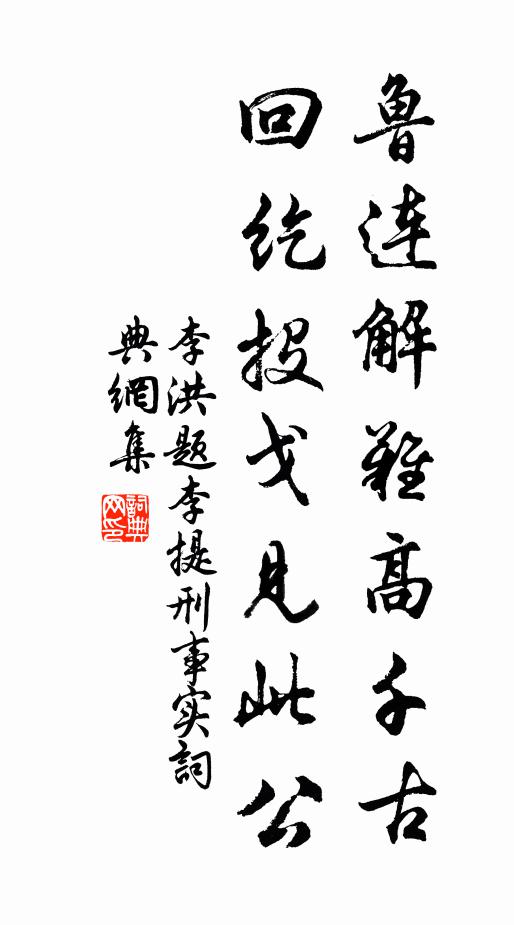 魯連解難高千古
回紇投戈見此公
李洪题李提刑事实詞
典網集
詞典网印